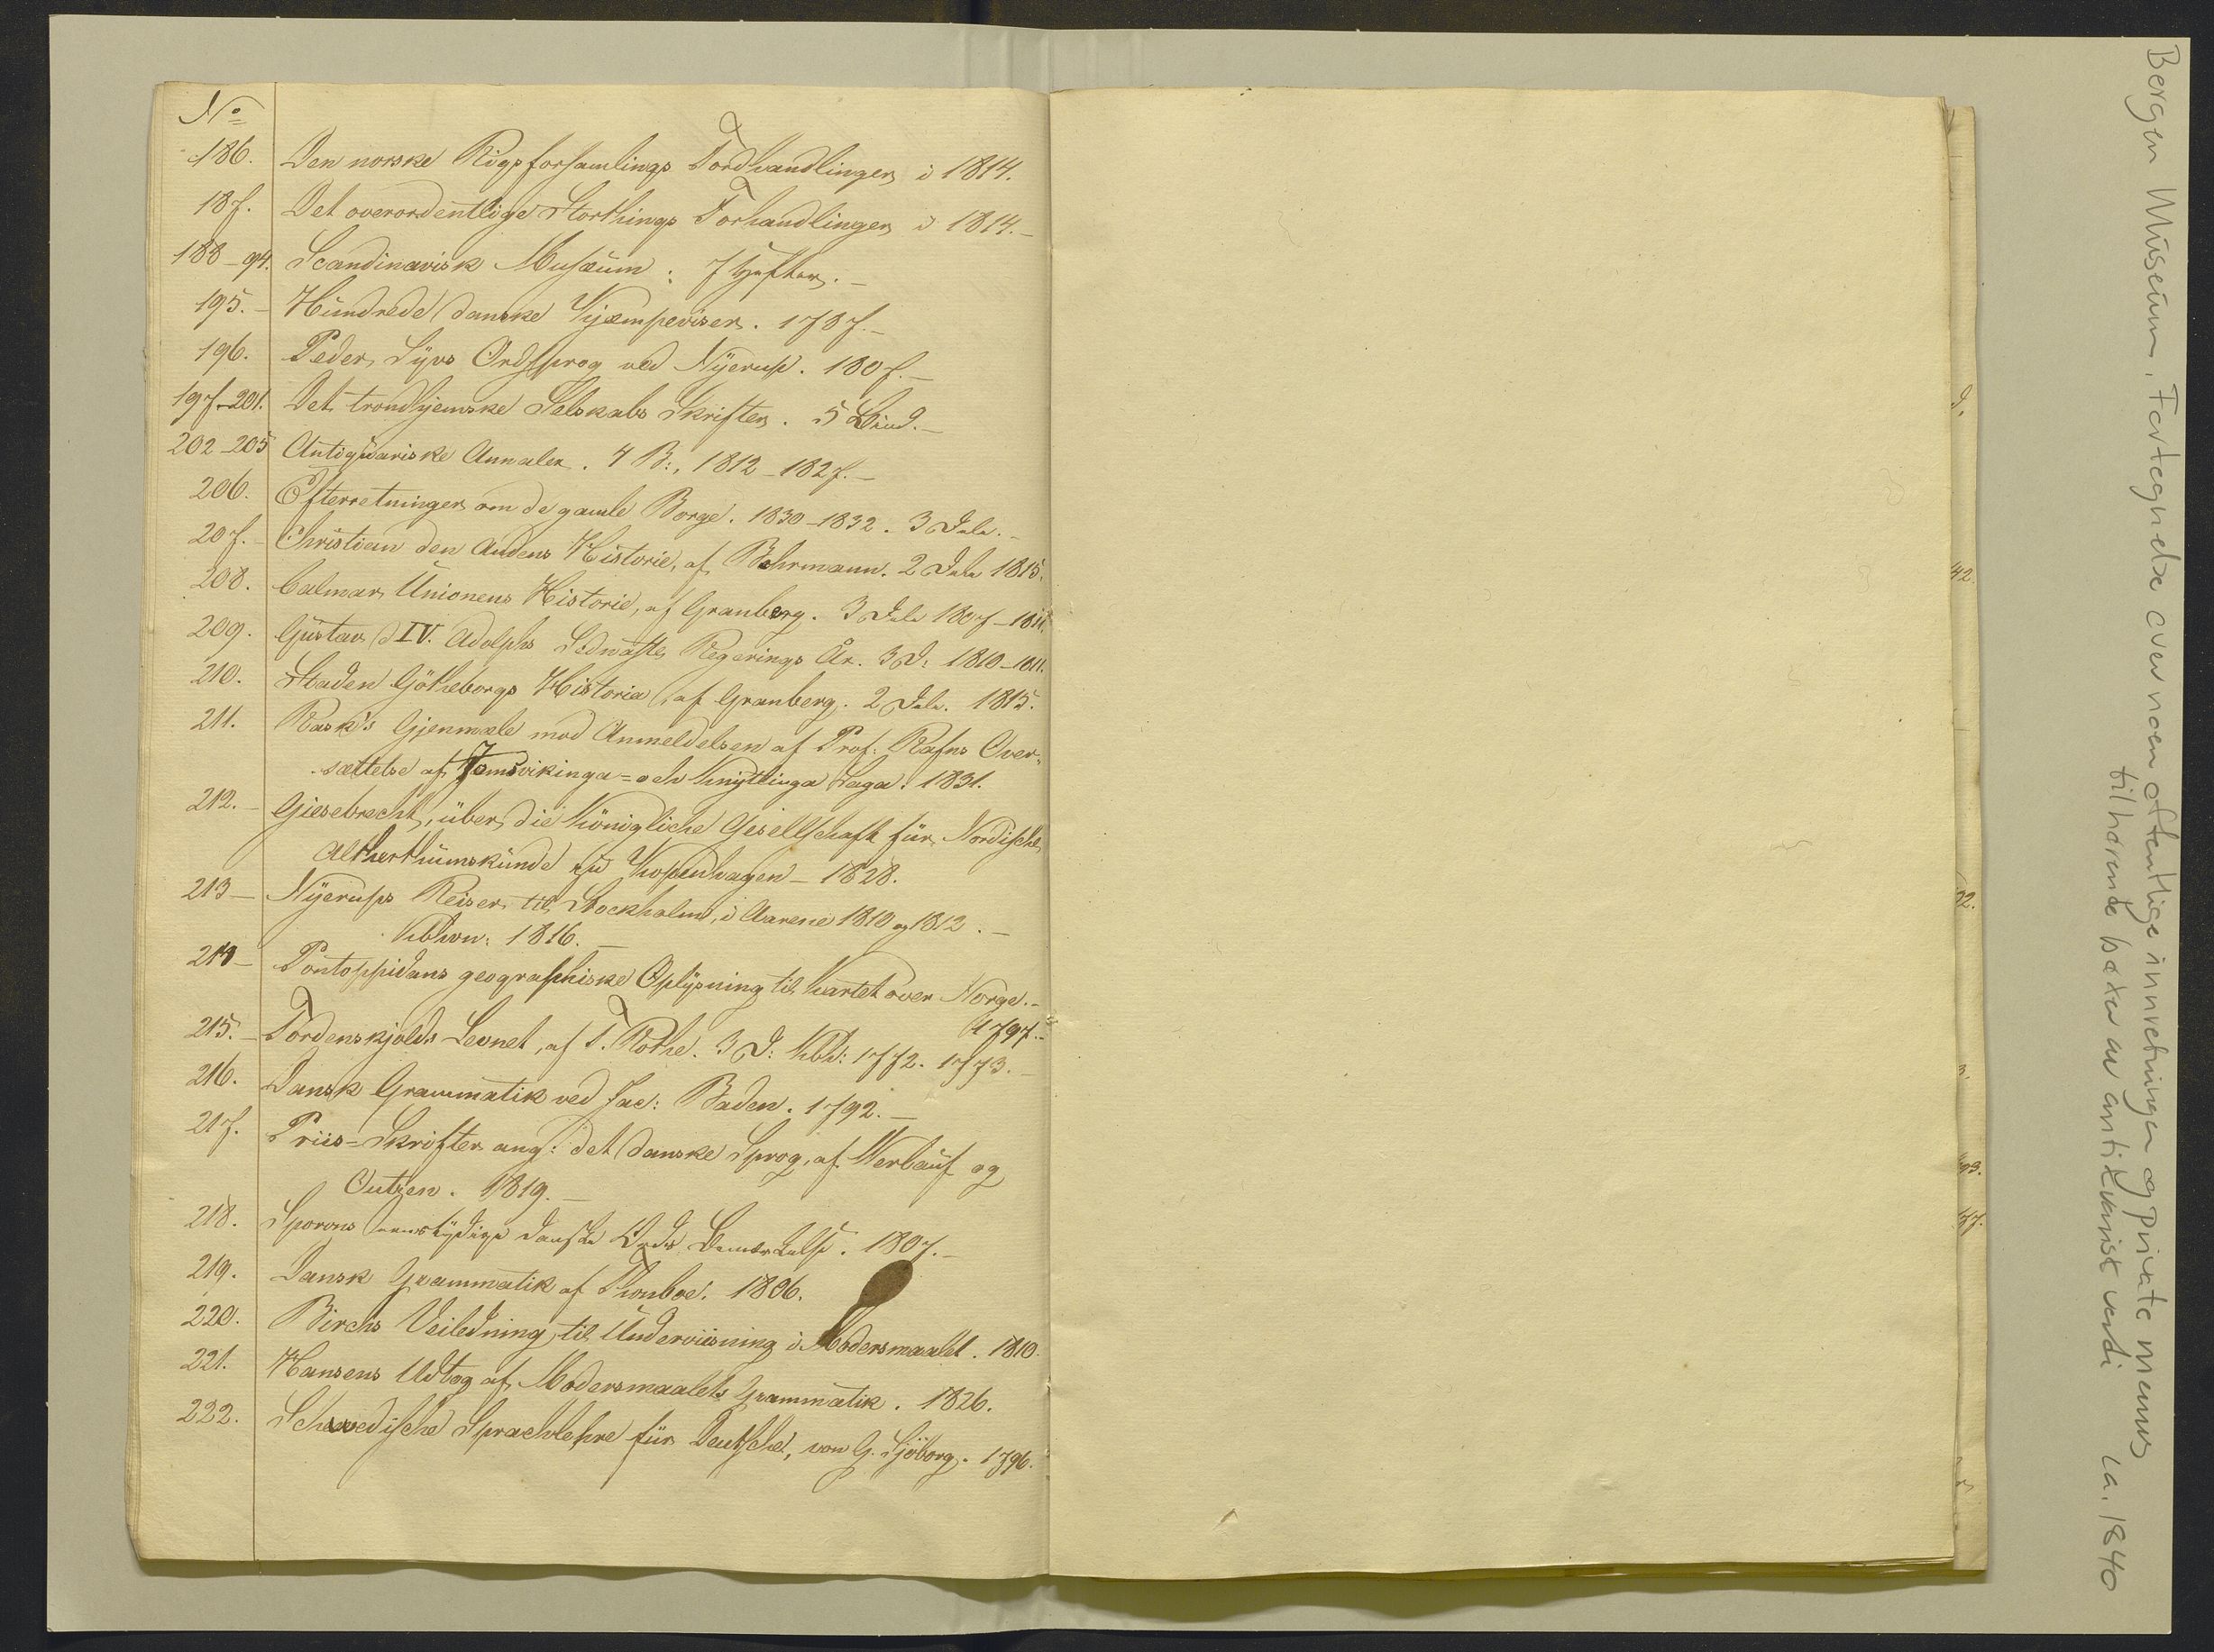 No
186. Den norske Rigsforsamlings Fordhandlinger i 1814.
187. Det overordentlige Storthings Forhandlinger i 1814.–
188–94. Scandinavisk Musæum. 7 Hefter.–
195.– Hundrede danske Kjæmpeviser. 1787.–
196. Peder Syvs Ordsprog ved Nyerup. 1807.–
197–201. Det trondhjemske Selskabs Skrifter. 5 Bind.–
202–205 Antiqvariske Annaler. 4 B:, 1812–1827.–
206. Efterretninger om de gamle Borge. 1830–1832. 3 Dele.–
207.– Christian den Andens Historie, af Behrmann. 2 Dele 1815.
208. Calmar Unionens Historie, af Granberg. 3 Dele 1807–1811.
209. Gustav d IV. Adolphs Sednaste Regerings År. 3 D: 1810–1811.
210. Staden Götheborgs Historia, af Granberg. 2 Dele. 1815.
211. Rask's Gjenmæle mod Anmeldelsen af Prof: Rafns Over-
sættelse af Jomsvikinga= och Knytlinga Saga. 1831.
212.– Giesebrecht, über die Königliche Gesellschaft für Nordische
Altherthumskunde zu Kopenhagen – 1828.
213– Nyerups Reiser til Stockholm, i Aarene 1810 og 1812.–
Kbhvn: 1816.–
214– Pontoppidans geographiske Oplysning til Kartet over Norge.–
1797.–
215.– Tordenskjolds Levnet, af T. Rothe. 3 D: Kbh: 1772. 1773.–
216. Dansk Grammatik ved Jac: Baden. 1792.–
217. Priis=Skrifter ang: det danske Sprog, af Werlauf og
Outzen. 1819.–
218. Sporons eenstydige danske Ords Bemærkelse. 1807.–
219. Dansk Grammatik af Thonboe. 1806.
220. Birchs Veiledning til Underviisning i Modersmaalet. 1810.
221. Hansens Udtog af Modersmaalets Grammatik. 1826.
222. Schwedische Sprachlehre für Deutsche, von G. Sjöborg. 1796.
42.
22.
3.
93.
47.
Bergen Museum. Fortegnelse over noen offentlige innretninger og private menns
tilhørende bøker av antikvarisk verdi ca. 1840